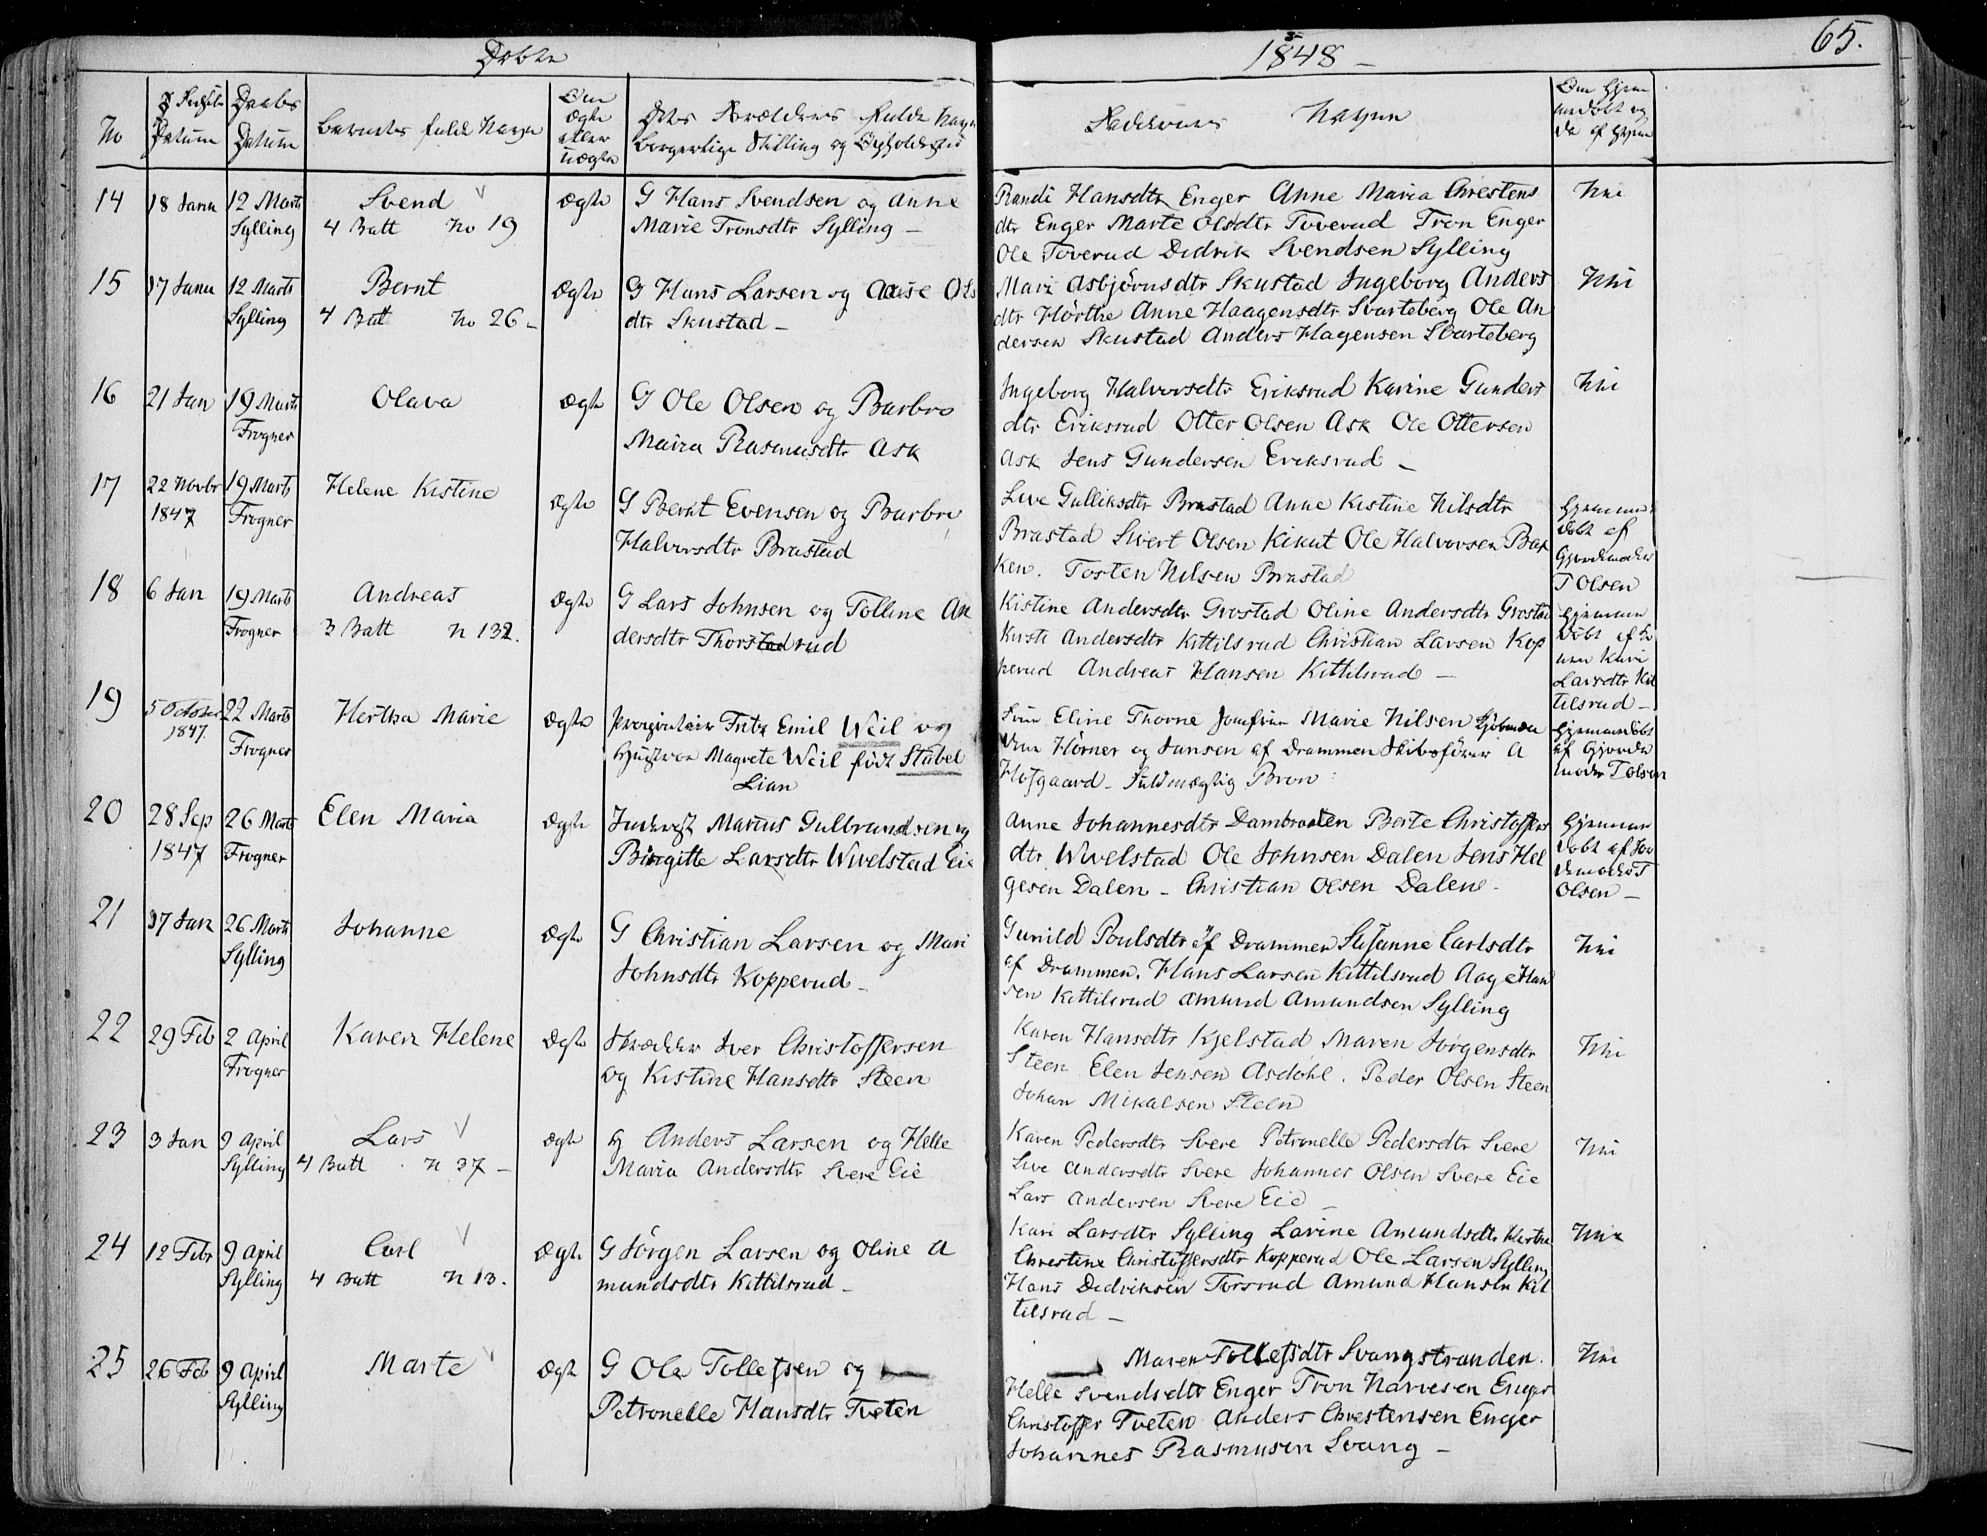 Døbte
1848 –
65.
No
Datum
Daabs Datum
Barnets fulde Navn
Om Ægte eller uægte
Dets Forældres fulde Navn
borgerlige Stilling og Opholdssted
Faddernes Navne
Om Hjem
døbt og
da af hvem
14 18 Janu 12 Marts Sylling
Svend
4 Batt No 19
Ægte
G Hans Svendsen og Anne
Marie Tronsdtr Sylling –
Randi Hansdtr Enger Anne Maria Chrestens
dtr Enger Marte Olsdtr Toverud Tron Enger
Ole Toverud Didrik Svendsen Sylling
Nei
15 17 Janu 12 Marts Sylling
Bernt
4 Batt No 26 –
Ægte
G Hans Larsen og Aase Ols
dtr Skustad –
Mari Asbjørnsdtr Skustad Ingeborg Anders
dtr Hørthe Anne Haagensdtr Svarteberg Ole An
dersen Skustad Anders Hagensen Svarteberg
Nei
16 21 Jan 19 Marts Frogner
Olava
Ægte
G Ole Olsen og Barbro
Maira Rasmusdtr Ask
Ingeborg Halvorsdtr Eriksrud Karine Gunders
dtr Eriksrud Otter Olsen Ask Ole Ottersen
Ask Jens Gundersen Eriksrud –
Nei
17 22 Novbr 1847 19 Marts Frogner
Helene Kistine
Ægte
G Bernt Evensen og Barbro
Halvorsdtr Brastad
Live Gulliksdtr Brastad Anne Kistine Nilsdtr
Brastad Sivert Olsen Kikut Ole Halvorsen Bak
ken. Tosten Nilsen Brastad
Hjemme
døbt af
Gjordemoder
T Olsen
18 6 Jan 19 Marts Frogner
Andreas
3 Batt N 132.
Ægte
G Lars Johnsen og Tolline An
dersdtr Thorstadrud
Kistine Andersdtr Grostad Oline Andersdtr Grostad
Kirsti Andersdtr Kittilsrud Christian Larsen Kop
perud Andreas Hansen Kittilsrud –
Hjemme
døbt af
Kari
Larsdtr Kit
tilsrud –
19 5 October 1847. 22 Marts Frogner
Hertha Marie
Ægte
Proprietair Fritz Emil Weil og
Hustroe Magrete Weil født Stabel
Lian
Eline Thorne Jomfrue Marie Nilsen Kjøbmæn
dene Hørner og Jansen af Drammen Skibsfører A
Hofgaard – Fuldmægtig Bron
Hjemmedøbt
af Gjorde
moder T Olsen
20 28 Sep 1847 26 Marts Frogner
Elen Maria
Ægte
Inderst Marius Gulbrandsen og
Birgitte Larsdtr Wivelstad Eie
Anne Johannesdtr Dambraaten Berte Christoffers
dtr Wivelstad Ole Johnsen Dalen Jens Hel
gesen Dalen – Christian Olsen Dalene –
Hjemme
døbt af Jor
demoder T
Olsen –
21 17 Jan 26 Marts Sylling
Johanne
Ægte
G Christian Larsen og Mari
Johnsdtr Kopperud –
Gunild Poulsdtr af Drammen Susanne Carlsdtr
af Drammen. Hans Larsen Kittilsrud Aage Han
sen Kittilsrud Amund Amundsen Sylling
Nei
22 29 Feb 2 April Frogner
Karen Helene
Ægte
Skrædder Iver Christoffersen
og Kistine Hansdtr Steen
Karen Hansdtr Kjelstad Maren Jørgensdtr
Steen Elen Jensen Asdøhl. Peder Olsen Steen
Johan Mikalsen Steen
Nei
23 3 Jan 9 April Sylling
Lars
4 Batt N 37 –
Ægte
G Anders Larsen og Helle
Maria Andersdtr Svere Eie
Karen Pedersdtr Svere Petronelle Pedersdtr Svere
Live Andersdtr Svere Johannes Olsen Svere Eie
Lars Andersen Svere Eie –
Nei
24 12 Febr 9 April Sylling
Carl
4 Batt N 13.
Ægte
G Jørgen Larsen og Oline A
mundsdtr Kittilsrud –
Kari Larsdtr Sylling Lavine Amundsdtr Hørthe
Chrestine Christoffersdtr Kopperud Ole Larsen Sylling
Hans Didriksen Torsrud Amund Hansen Kit
tilsrud –
Nei
25 26 Feb 9 April Sylling
Marte
Ægte
G Ole Tollefsen og
Petronelle Hansdtr Tveten
Maren Tollefsdtr Svangstranden.
Helle Svendsdtr Enger Tron Narvesen Enger
Christoffer Tveten Anders Chrestensen Enger
Johannes Rasmusen Svang –
Nei